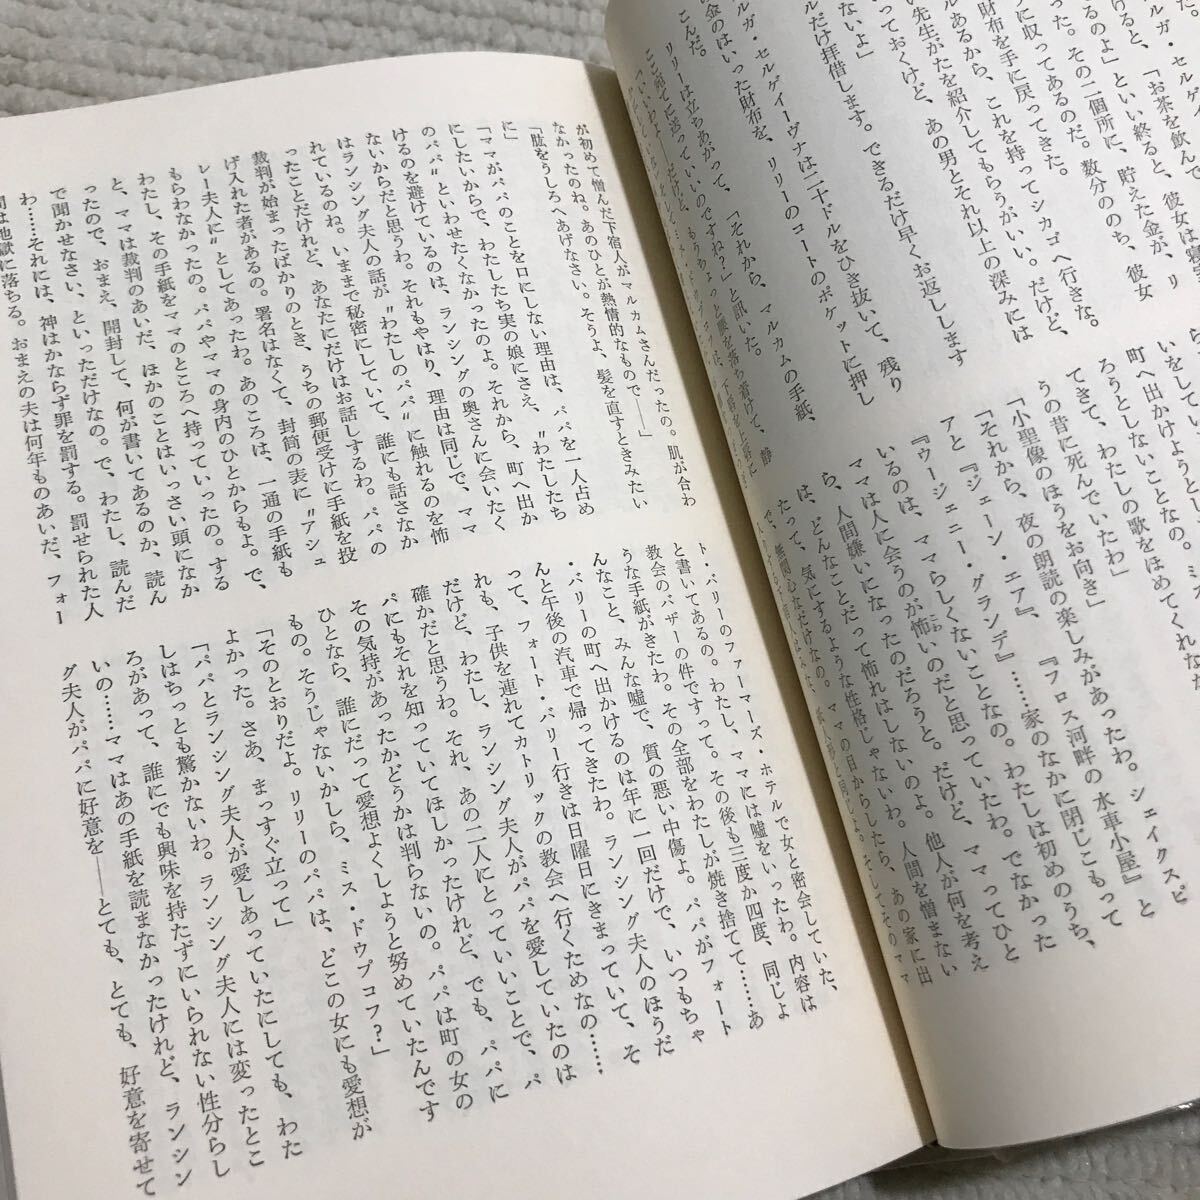 ルガ・セルゲ
ると、「お茶を飲んで
るのよ」といい終ると、彼女は寝
った。その二個所に、貯えた金が、リ
に収ってあるのだ。数分ののち、彼女
財布を手に戻ってきた。
ルあるから、これを持ってシカゴへ行きな。
先生がたを紹介してもらうがいい。だけど、
っておくけど、あの男とそれ以上の深みには
ないよ」
ルだけ拝借します。できるだけ早くお返しします
ルガ・セルゲイーヴナは二十ドルをひき抜いて、残り
金のはいった財布を、リリーのコートのポケットに押し
こんだ。
リリーは立ちあがって、「それから、マルカムの手紙、
ここ宛てに送っていいのですね？」と訊いた。
いをして、
町へ出かけようと
ろうとしないことなの。
てきて、わたしの歌をほめてくれた
うの昔に死んでいたわ」
「小聖像のほうをお向き」
「それから、夜の朗読の楽しみがあったわ。シェイクスピ
アと『ジェーン・エア』、『フロス河畔の水車小屋』と
『ウージェニー・グランデ』……家のなかに閉じこもって
いるのは、ママらしくないことなの。わたしは初めのうち、
ママは人に会うのが怖いのだと思っていたわ。でなかった
ら、人間嫌いになったのだろうと。だけど、ママってひと
は、どんなことだって怖れはしないのよ。他人が何を考え
たって、気にするような性格じゃないわ。人間を憎まない
が初めて憎んだ下宿人がマルカムさんだったの。肌が合わ
なかったのね。あのひとが熱情的なもので――」
「肱をうしろへあげなさい。そうよ、髪を直すときみたい
に」
「ママがパパのことを口にしない理由は、パパを一人占め
にしたいからで、わたしたち実の娘にさえ、〝わたしたち
のパパ〟といわせたくなかったのよ。それから、町へ出か
けるのを避けているのは、ランシングの奥さんに会いたく
ないからだと思うわ。それもやはり、理由は同じで、ママ
はランシング夫人の話が〝わたしのパパ〟に触れるのを怖
れているのね。いままで秘密にしていて、誰にも話さなか
ったことだけれど、あなたにだけはお話しするわ。パパの
裁判が始まったばかりのとき、うちの郵便受けに手紙を投
げ入れた者があるの。署名はなくて、封筒の表に〝アシュ
レー夫人に〟としてあったわ。あのころは、一通の手紙も
もらわなかったの。パパやママの身内のひとからもよ。で、
わたし、その手紙をママのところへ持っていったの。する
と、ママは裁判のあいだ、ほかのことはいっさい頭になか
ったので、おまえ、開封して、何が書いてあるのか、読ん
で聞かせなさい、といっただけなの。で、わたし、読んだ
わ……それには、神はかならず罪を罰する。罰せられた人
間は地獄に落ちる。おまえの夫は何年ものあいだ、フォー
ト・バリーのファーマーズ・ホテルで女と密会していた、
と書いてあるの。わたし、ママには嘘をいったわ。内容は
教会のバザーの件ですって。その後も三度か四度、同じよ
うな手紙がきたわ。その全部をわたしが焼き捨てて……あ
んなこと、みんな嘘で、質の悪い中傷よ。パパがフォート
・バリーの町へ出かけるのは年に一回だけで、いつもちゃ
んと午後の汽車で帰ってきたわ。ランシング夫人のほうだ
って、フォート・バリー行きは日曜日にきまっていて、そ
れも、子供を連れてカトリックの教会へ行くためなの……
だけど、わたし、ランシング夫人がパパを愛していたのは
確かだと思うわ。それ、あの二人にとっていいことで、パ
パにもそれを知っていてほしかったけれど、でも、パパに
その気持があったかどうかは判らないの。パパは町の女の
ひとなら、誰にだって愛想よくしようと努めていたんです
もの。そうじゃないかしら、ミス・ドゥブコフ？」
「そのとおりだよ。リリーのパパは、どこの女にも愛想が
よかった。さあ、まっすぐ立って」
「パパとランシング夫人が愛しあっていたにしても、わた
しはちっとも驚かないわ。ランシング夫人には変ったとこ
ろがあって、誰にでも興味を持たずにいられない性分らし
いの……ママはあの手紙を読まなかったけれど、ランシン
グ夫人がパパに好意を――とても、とても、好意を寄せて